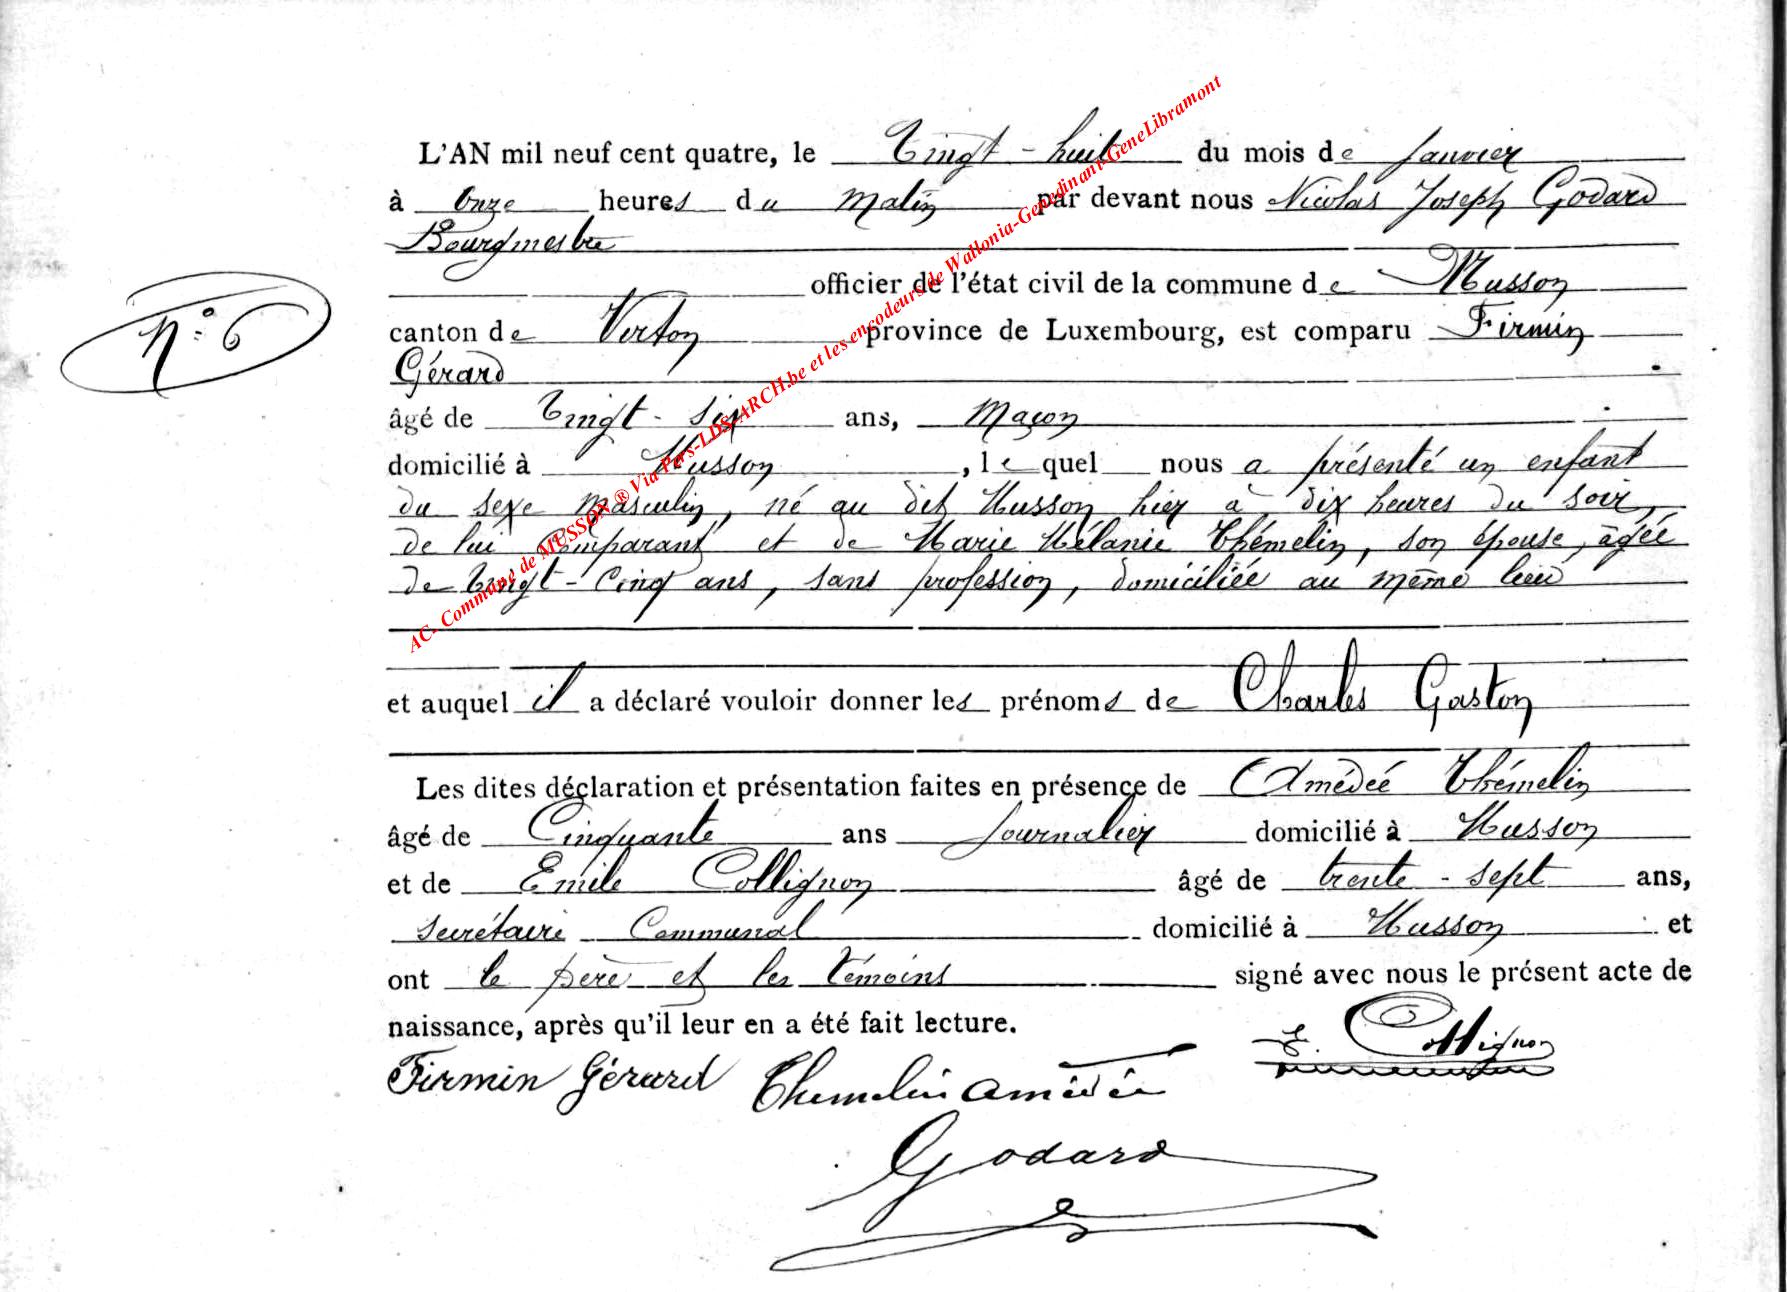 L'AN mil neuf cent quatre, le Vingt-huit du mois de Janvier
à Onze heures du Matin par devant nous Nicolas Joseph Godard
Bourgmestre
officier de l'état civil de la commune de Musson
N° 6
canton de Virton province de Luxembourg, est comparu Firmin
Gérard
âgé de Vingt-six ans, Maçon
domicilié à Musson, lequel nous a présenté un enfant
du sexe masculin, né au dit Musson hier à dix heures du soir,
de lui Comparant et de Marie Mélanie Thémelin, son épouse, âgée
de Vingt-Cinq ans, sans profession, domiciliée au même lieu
et auquel il a déclaré vouloir donner les prénoms de Charles Gaston
Les dites déclaration et présentation faites en présence de Amédée Thémelin
âgé de Cinquante ans Journalier domicilié à Musson
et de Emile Collignon âgé de trente-sept ans,
secrétaire Communal domicilié à Musson et
ont le père et les témoins signé avec nous le présent acte de
naissance, après qu'il leur en a été fait lecture.
E. Collignon
Firmin Gérard Themelin Amédée
Godard
AC. Commune de MUSSON® Via Pers-LDS-ARCH.be et les encodeurs de Wallonia-Genedinant-GeneLibramont